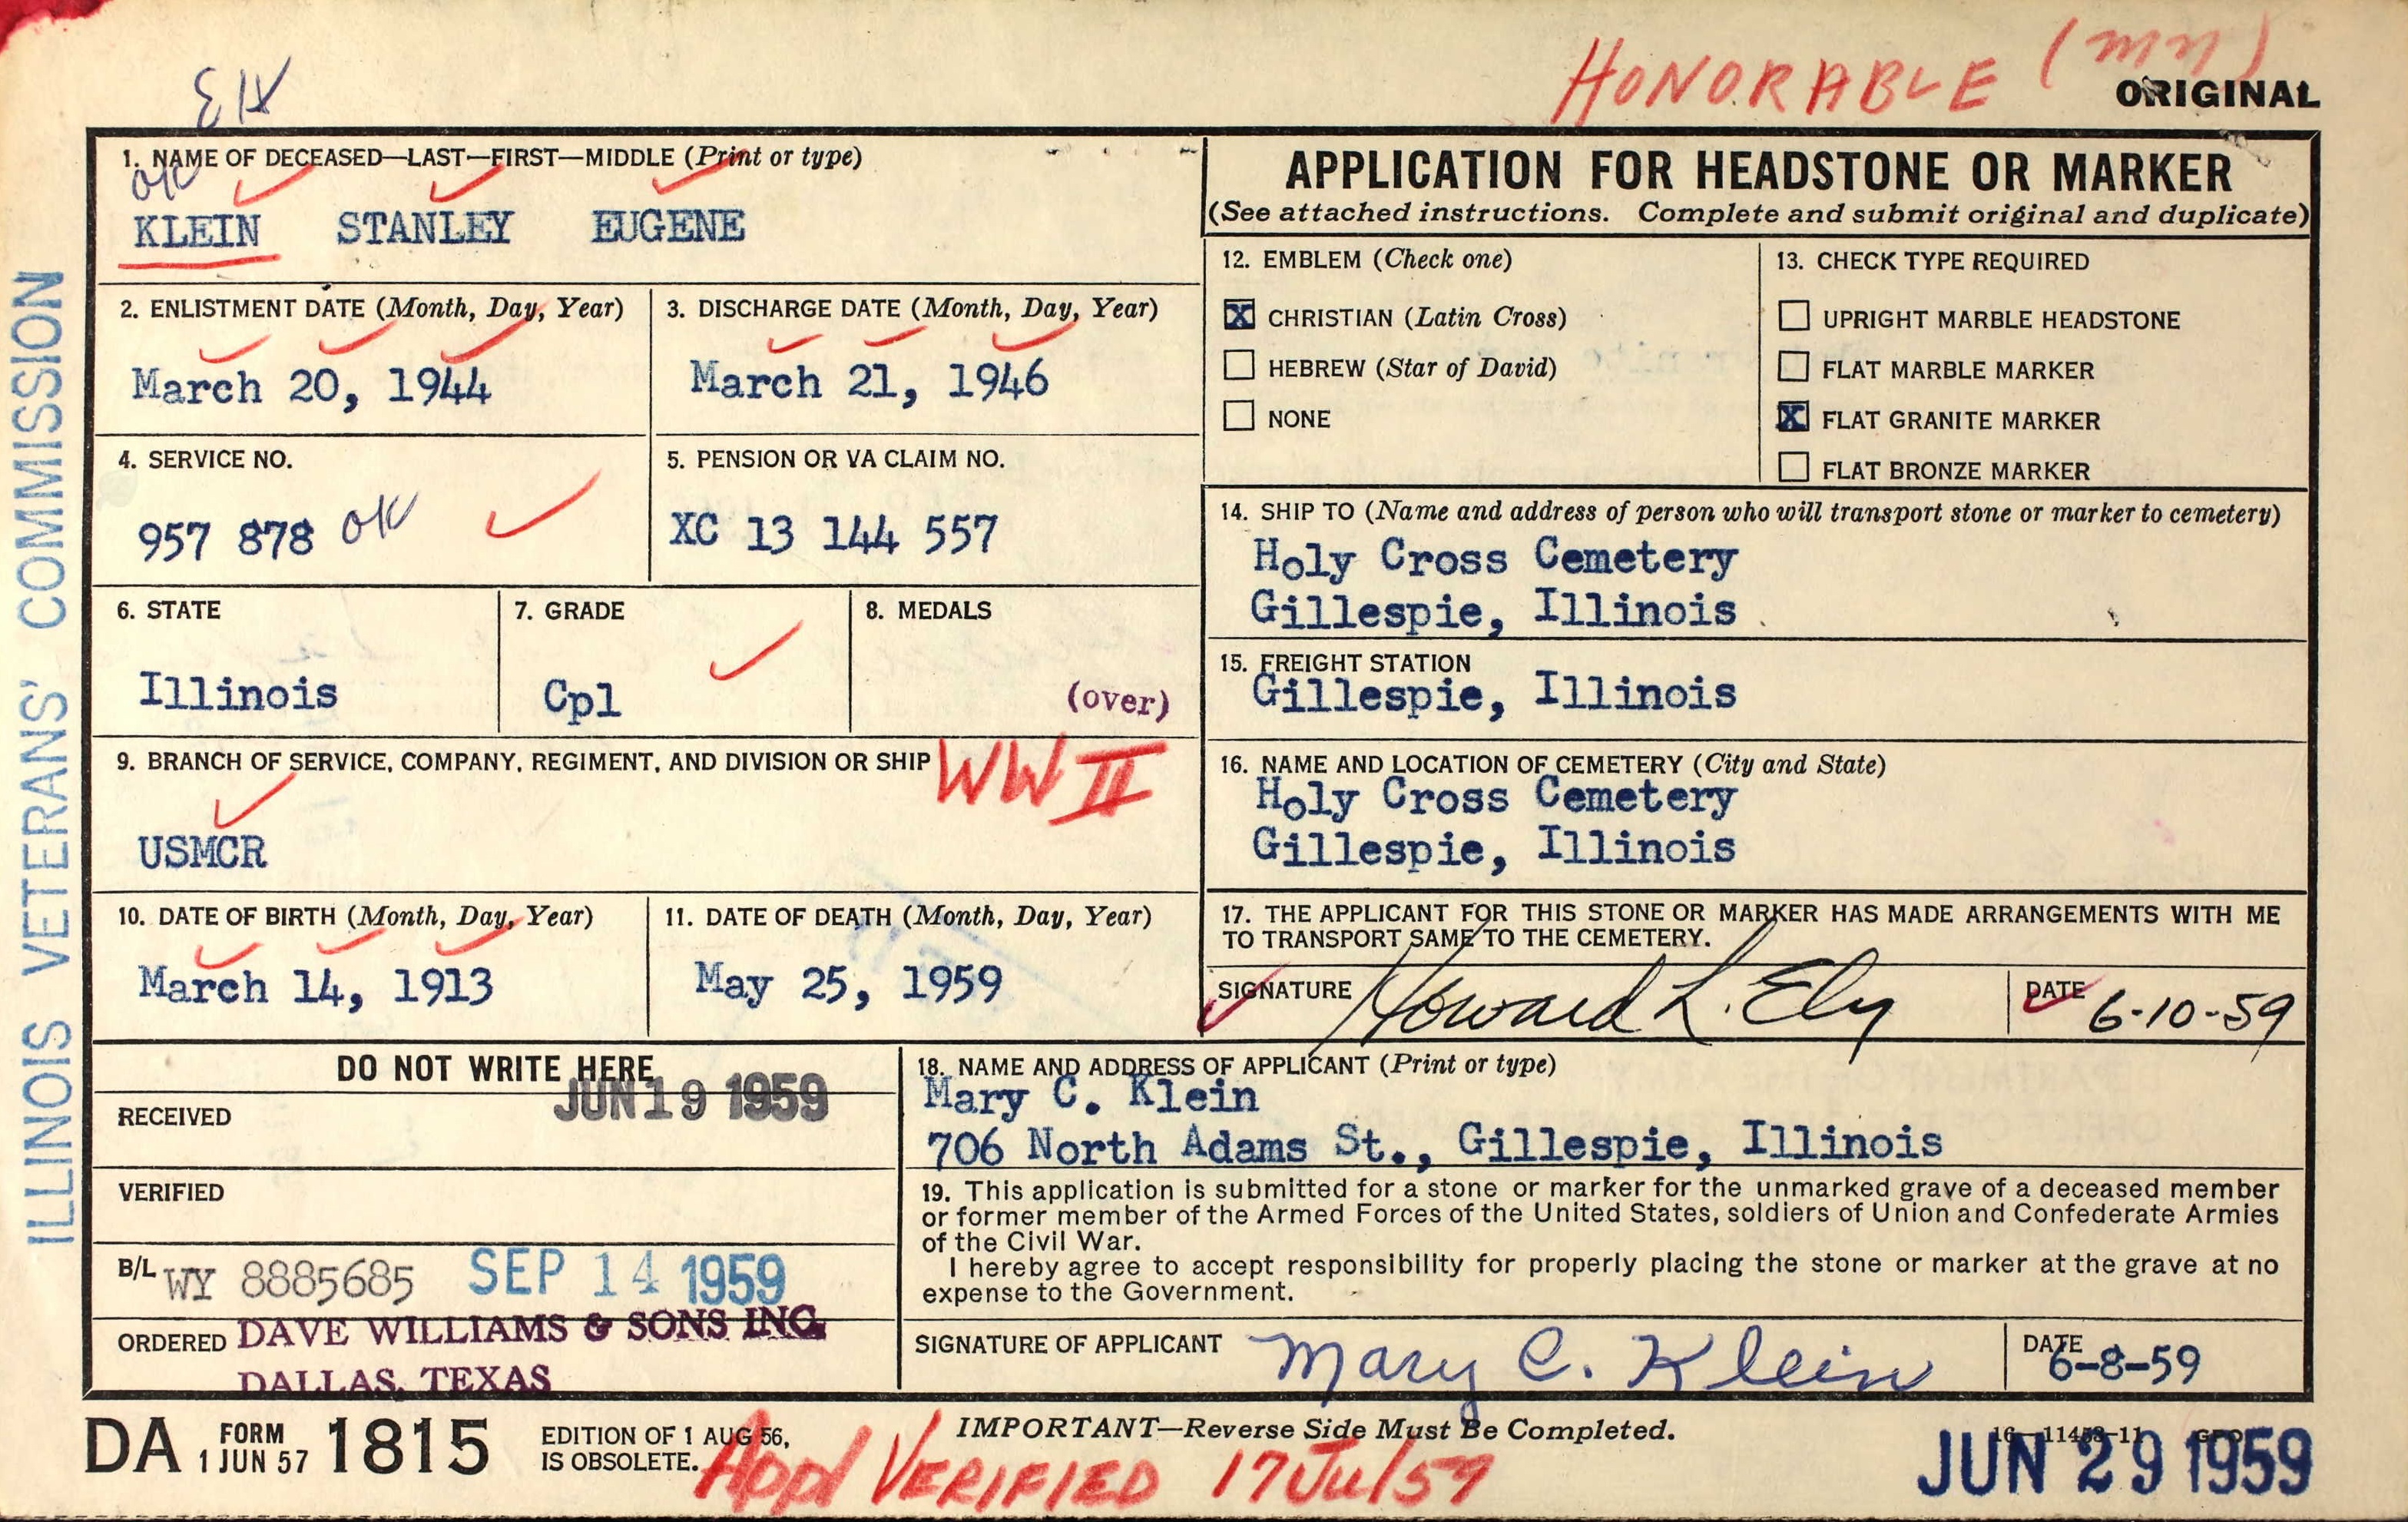 EK
HONORABLE (MN)
ORIGINAL
1. NAME OF DECEASED—LAST—FIRST—MIDDLE (Print or type)
OK
KLEIN STANLEY EUGENE
2. ENLISTMENT DATE (Month, Day, Year)
March 20, 1944
3. DISCHARGE DATE (Month, Day, Year)
March 21, 1946
4. SERVICE NO.
957 878 OK
5. PENSION OR VA CLAIM NO.
XC 13 144 557
6. STATE
Illinois
7. GRADE
Cpl
8. MEDALS
(over)
9. BRANCH OF SERVICE, COMPANY, REGIMENT, AND DIVISION OR SHIP
WW II
USMCR
10. DATE OF BIRTH (Month, Day, Year)
March 14, 1913
11. DATE OF DEATH (Month, Day, Year)
May 25, 1959
APPLICATION FOR HEADSTONE OR MARKER
(See attached instructions. Complete and submit original and duplicate)
12. EMBLEM (Check one)
X CHRISTIAN (Latin Cross)
HEBREW (Star of David)
NONE
13. CHECK TYPE REQUIRED
UPRIGHT MARBLE HEADSTONE
FLAT MARBLE MARKER
X FLAT GRANITE MARKER
FLAT BRONZE MARKER
14. SHIP TO (Name and address of person who will transport stone or marker to cemetery)
Holy Cross Cemetery
Gillespie, Illinois
15. FREIGHT STATION
Gillespie, Illinois
16. NAME AND LOCATION OF CEMETERY (City and State)
Holy Cross Cemetery
Gillespie, Illinois
17. THE APPLICANT FOR THIS STONE OR MARKER HAS MADE ARRANGEMENTS WITH ME
TO TRANSPORT SAME TO THE CEMETERY.
SIGNATURE Howard L. Ely
DATE 6-10-59
DO NOT WRITE HERE
JUN 19 1959
RECEIVED
VERIFIED
B/L WY 8885685 SEP 14 1959
ORDERED DAVE WILLIAMS & SONS INC.
DALLAS, TEXAS
18. NAME AND ADDRESS OF APPLICANT (Print or type)
Mary C. Klein
706 North Adams St., Gillespie, Illinois
19. This application is submitted for a stone or marker for the unmarked grave of a deceased member
or former member of the Armed Forces of the United States, soldiers of Union and Confederate Armies
of the Civil War.
I hereby agree to accept responsibility for properly placing the stone or marker at the grave at no
expense to the Government.
SIGNATURE OF APPLICANT Mary C. Klein
DATE 6-8-59
DA FORM 1 JUN 57 1815
EDITION OF 1 AUG 56,
IS OBSOLETE.
IMPORTANT—Reverse Side Must Be Completed.
16—11453-11 GPO
VERIFIED 17 Jul 59
JUN 29 1959
ILLINOIS VETERANS' COMMISSION